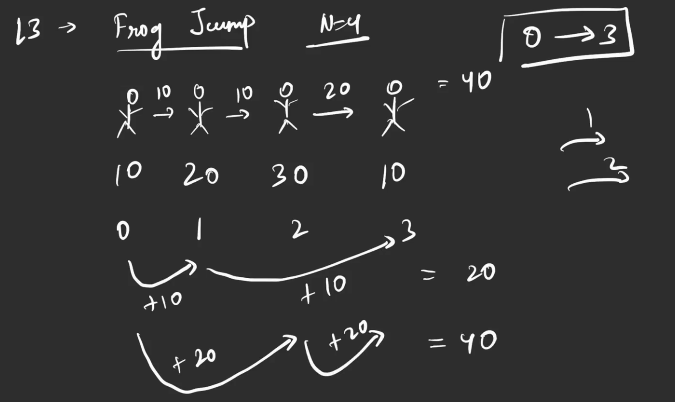 L3 → Frog Jump N=4 0 → 3
10 → 10 → 20 → = 40
1
10 20 30 10
2
0 1 2 3
+10 +10 = 20
+20 +20 = 40